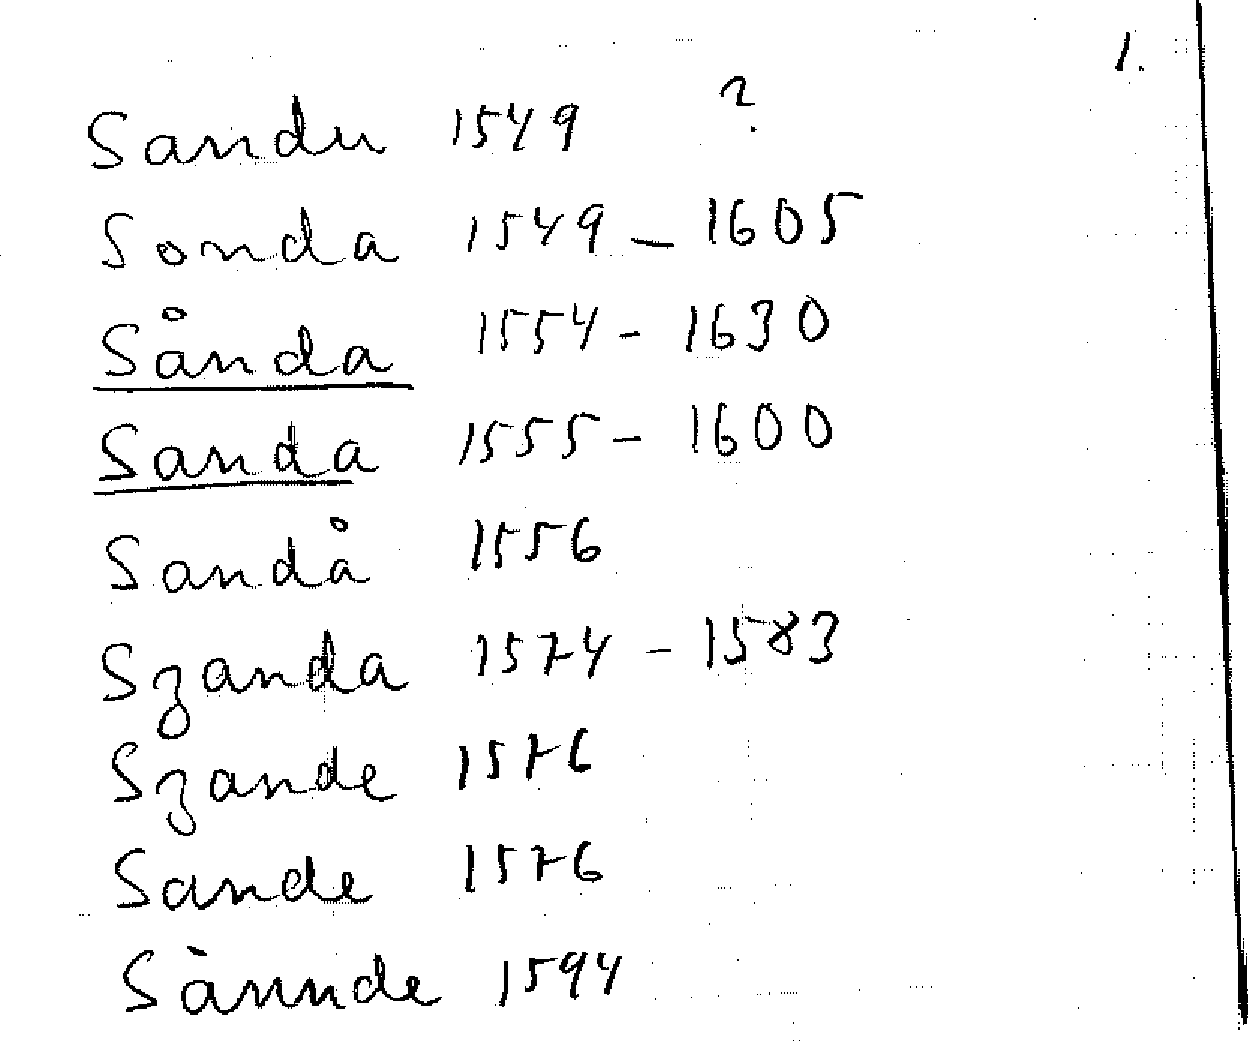 1.
Sandu 1549 ?
Sonda 1549 - 1605
Sånda 1554 - 1630
Sanda 1555 - 1600
Sandå 1556
Szanda 1574 - 1583
Szande 1576
Sande 1576
Sànnde 1594